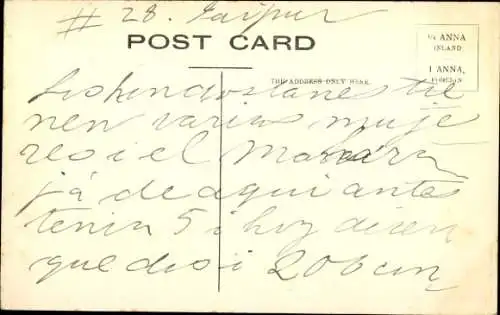 # 28. Jaipur
POST CARD
½ ANNA
INLAND
1 ANNA,
FOREIGN
THE ADDRESS ONLY HERE.
Los hindostanes tie
nen varias muje
res i el Maharú
já de aqui antes
tenia 5 i hoy dicen
que dos i 206 con